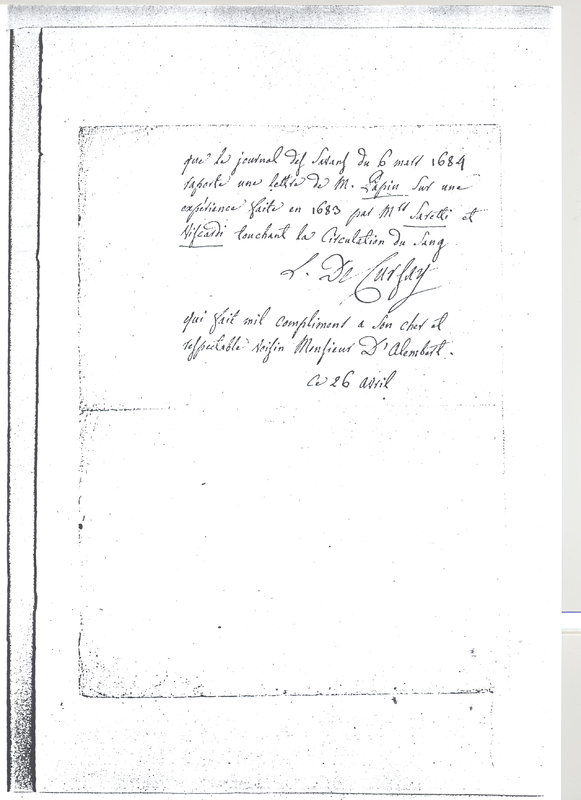 que le journal des savans du 6 mars 1684
raporte une lettre de M. Papin sur une
expérience faite en 1683 par Mrs Sarotti et
Viscardi touchant la Circulation du Sang
L. De Cursay
qui fait mil compliment a son cher et
respectable voisin Monsieur D'Alembert.
ce 26 avril